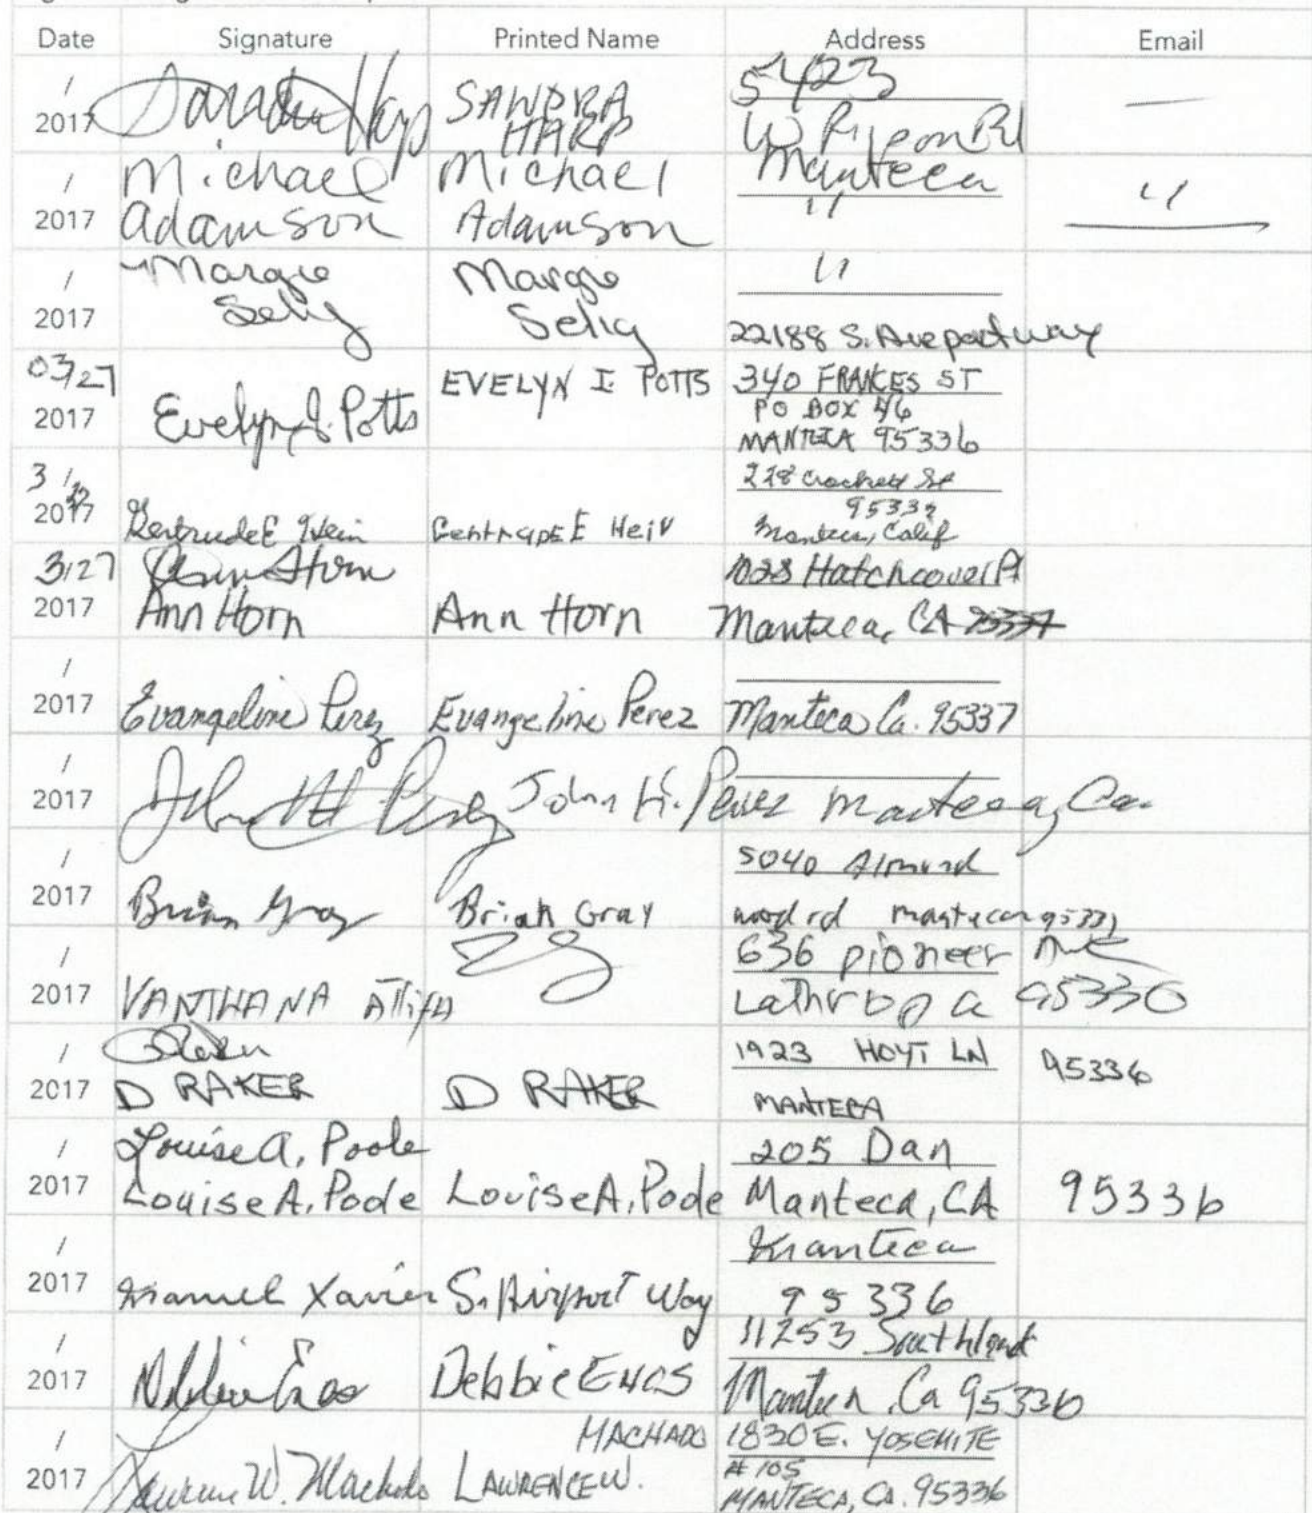 Date Signature Printed Name Address Email
/ 2017 SANDRA HARP 5423 W Ripon Rd Manteca —
/ 2017 Michael Adamson Michael Adamson " "
/ 2017 Margie Selig Margie Selig " 22188 S. Airport way
03/27 2017 Evelyn I. Potts EVELYN I. POTTS 340 FRANCES ST PO BOX 46 MANTECA 95336
3/27 2017 Gertrude E Hein Gertrude E Hein 228 Crockett St 95337 Manteca, Calif
3/27 2017 Ann Horn Ann Horn Ann Horn 1028 Hatchcover Pl Manteca, CA 95337
/ 2017 Evangeline Perez Evangeline Perez Manteca Ca. 95337
/ 2017 John H Perez John H. Perez Manteca, Ca.
/ 2017 Brian Gray Brian Gray 5040 Almond wood rd manteca 95337
/ 2017 VANTHANA 636 pioneer Ave Lathrop Ca 95330
/ 2017 D RAKER D RAKER 1923 HOYT LN MANTECA 95336
/ 2017 Louise A. Poole Louise A. Poole Louise A. Poole 205 Dan Manteca, CA 95336
/ 2017 Manuel Xavier S. Airport Way Manteca 95336
/ 2017 Debbie Enos Debbie ENOS 11253 Southland Manteca, Ca 95336
/ 2017 Lawrence W. Machado MACHADO LAWRENCE W. 1830 E. YOSEMITE #105 MANTECA, CA. 95336